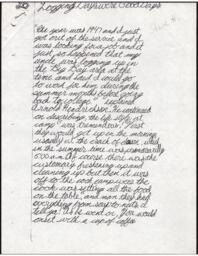 Logging Days were Good Days
"The year was 1947 and I just
got out of the service and I
was looking for a job and it
just so happened that my
uncle was logging up in
the Big Bay area at the
time and said I could go
to work for him during the
summer months before going
back to college" declared
Arnold Henrickson. He continued
on describing the life style at
camp was tremendous. First
they would get up in the morning
usually at the crack of dawn, which
in the summer time was generally
6:00 a.m. Of course there was the
customary freshening up and
cleaning up but then it was
off to the cook camp where the
cook was setting all the food
on the table, and man they had
everything from soup to nuts it
You would
onset with a cup of coffee